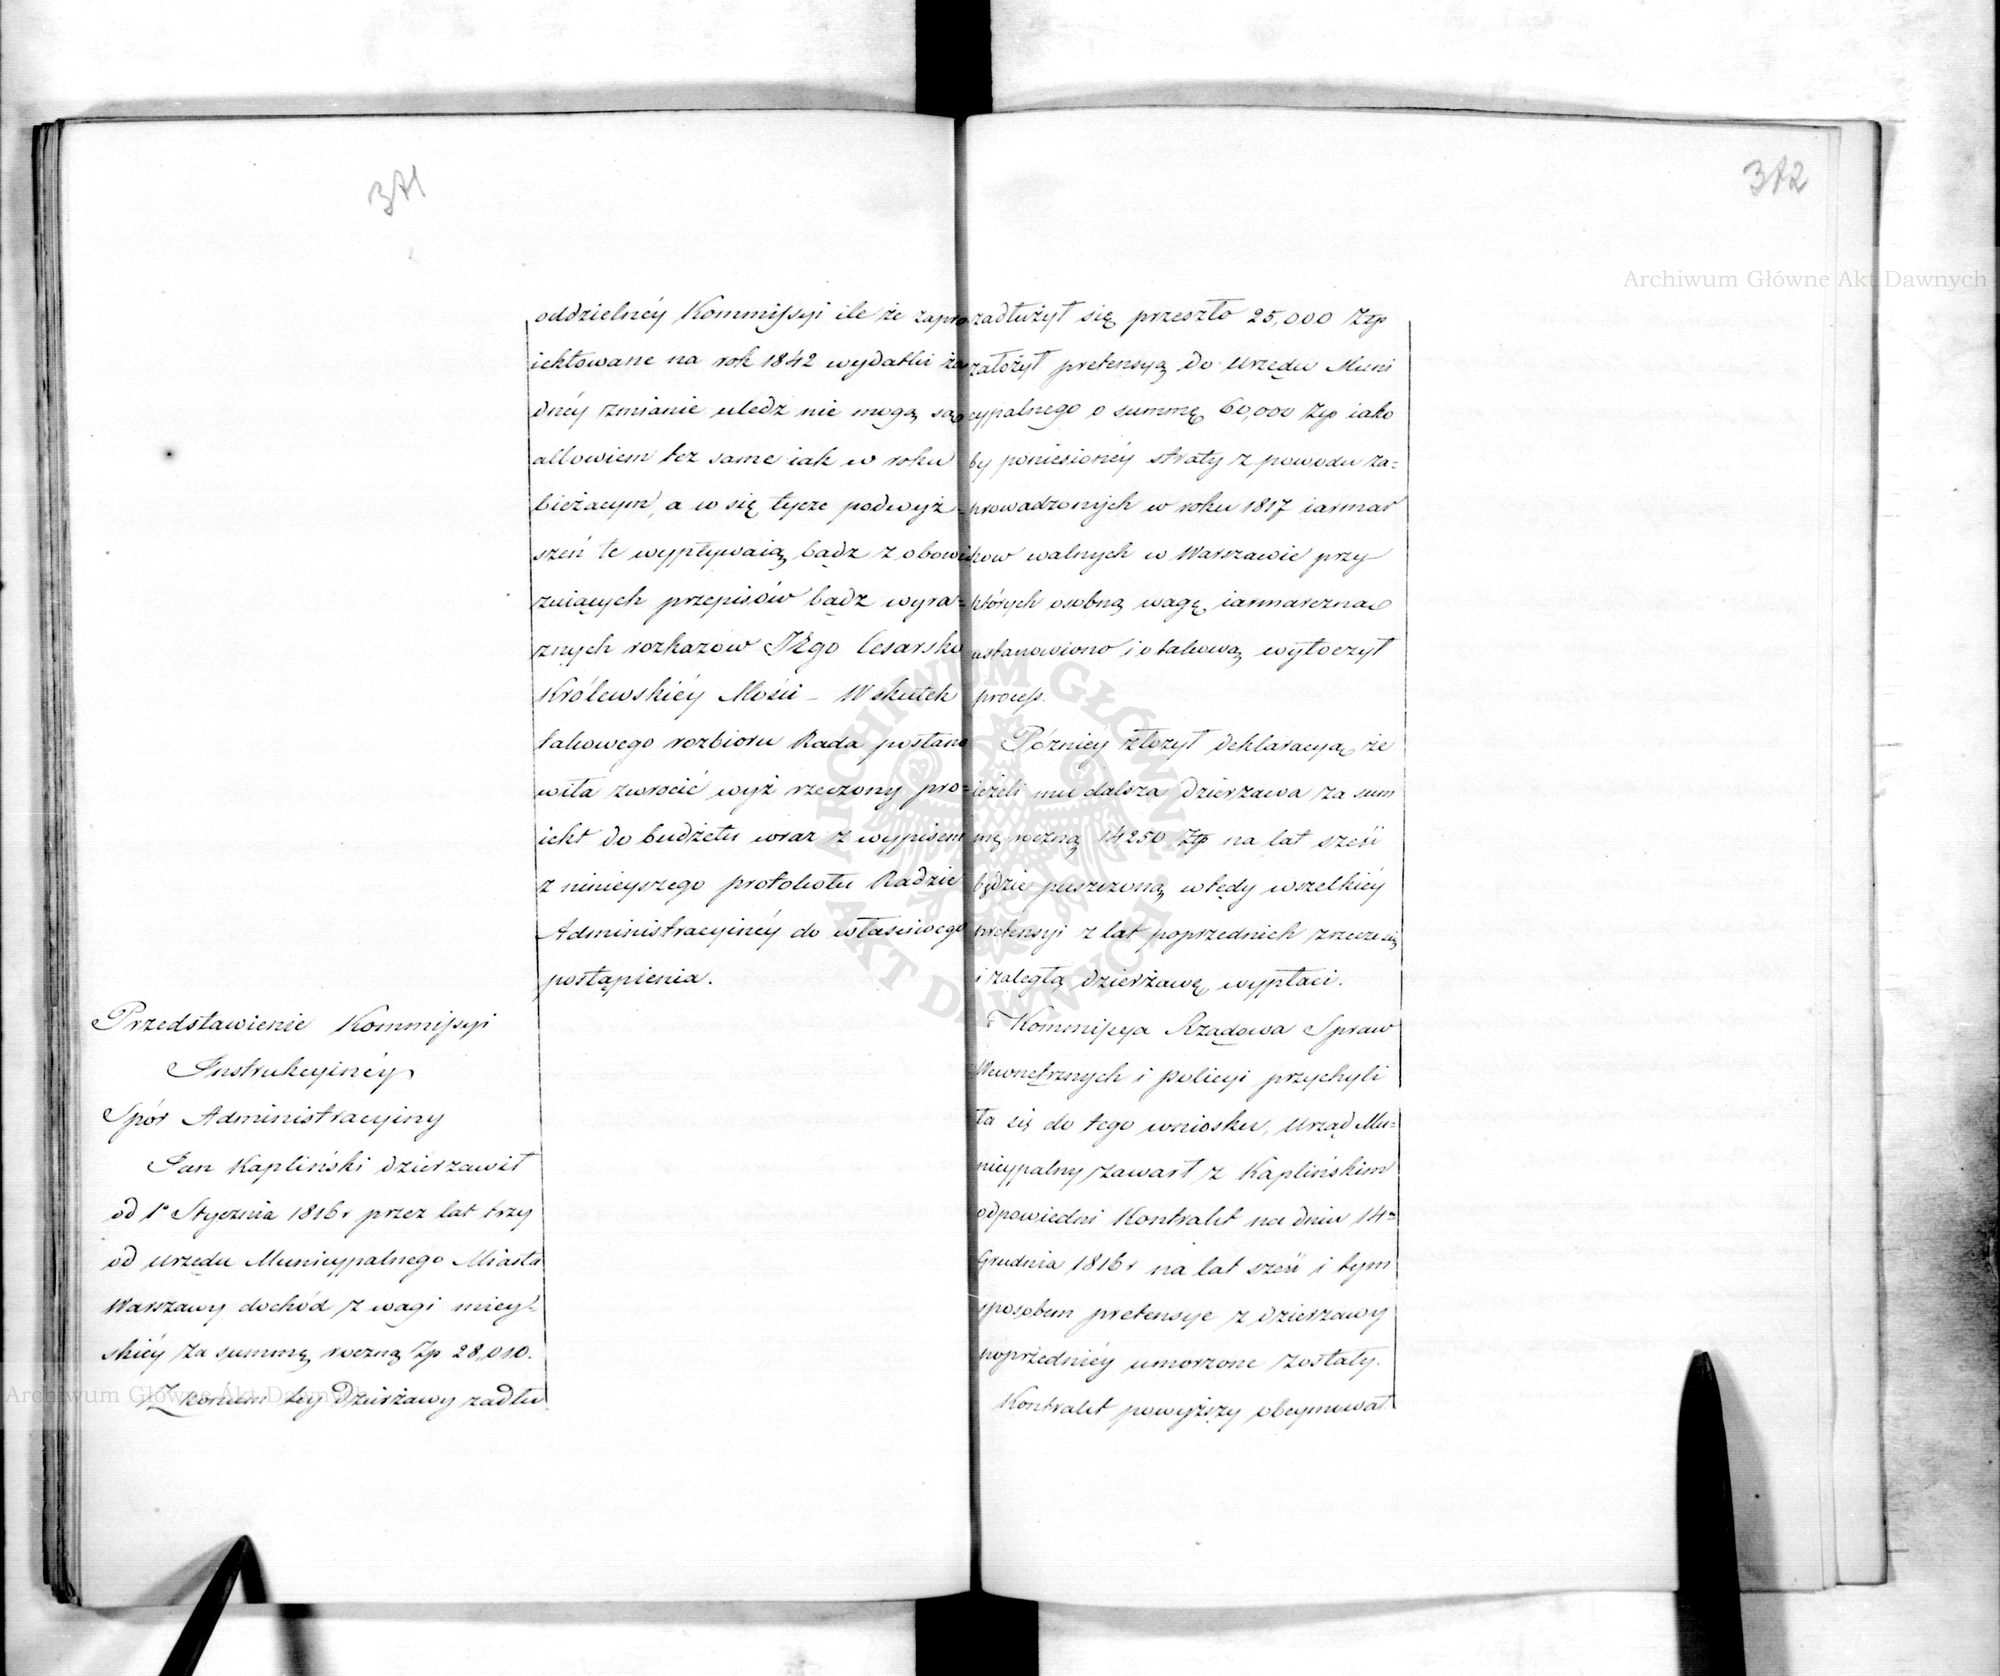 371
oddzielnéy Kommissyi ile że zapro
iektowane na rok 1842 wydatki ża
dnéy zmianie uledz nie mogą są
albowiem też same iak w roku
bieżącym, a co się tycze podwyż-
szeń te wypływaią bądz z obowi
zuiących przepisów bądz wyra-
znych rozkazow JEgo Cesarsko
Królewskiéy Mości – W skutek
takowego rozbioru Rada postano
wiła zwrocić wyż rzeczony pro-
iekt do budżetu wraz z wypisem
z ninieyszego protokołu Radzie
Administracyinéy do właściwego
postąpienia.
Przedstawienie Kommissyi
Instrukcyinéy
Spór Administracyiny
Jan Kapliński dzierzawił
od 1o Stycznia 1816 r przez lat trzy
od Urzędu Municypalnego Miasta
Warszawy dochód z wagi miey-
skiéy za summę roczną Zp 28,010.
Z końcem téy Dzierżawy zadłu
372
zadłużył się przeszło 25,000 Złp
założył pretensyą do Urzędu Muni
cypalnego o summę 60,000 Złp iako
by poniesionéy straty z powodu za-
prowadzonych w roku 1817 iarmar
kow walnych w Warszawie przy
których osobną wagę iarmarczną
ustanowiono i o takową wytoczył
process.
Pózniéy złożył deklaracyą że
ieżeli mu dalsza dzierzawa za sum
mę roczną 14250 Złp na lat sześć
będzie puszczoną wtedy wszelkiéy
pretensyi z lat poprzednich zrzecze się
i zaległą dzierżawę wypłaci.
Kommissya Rządowa Spraw
Wewnętrznych i Policyi przychyli
ła się do tego wniosku, Urząd Mu-
nicypalny zawarł z Kaplińskim
odpowiedni Kontrakt na dniu 14o
Grudnia 1816 r na lat sześć i tym
sposobem pretensye z dzierzawy
poprzedniéy umorzone zostały.
Kontrakt powyższy obeymował
Archiwum Główne Akt Dawnych
Archiwum Główne Akt Dawnych
ARCHIWUM GŁÓWNE
AKT DAWNYCH